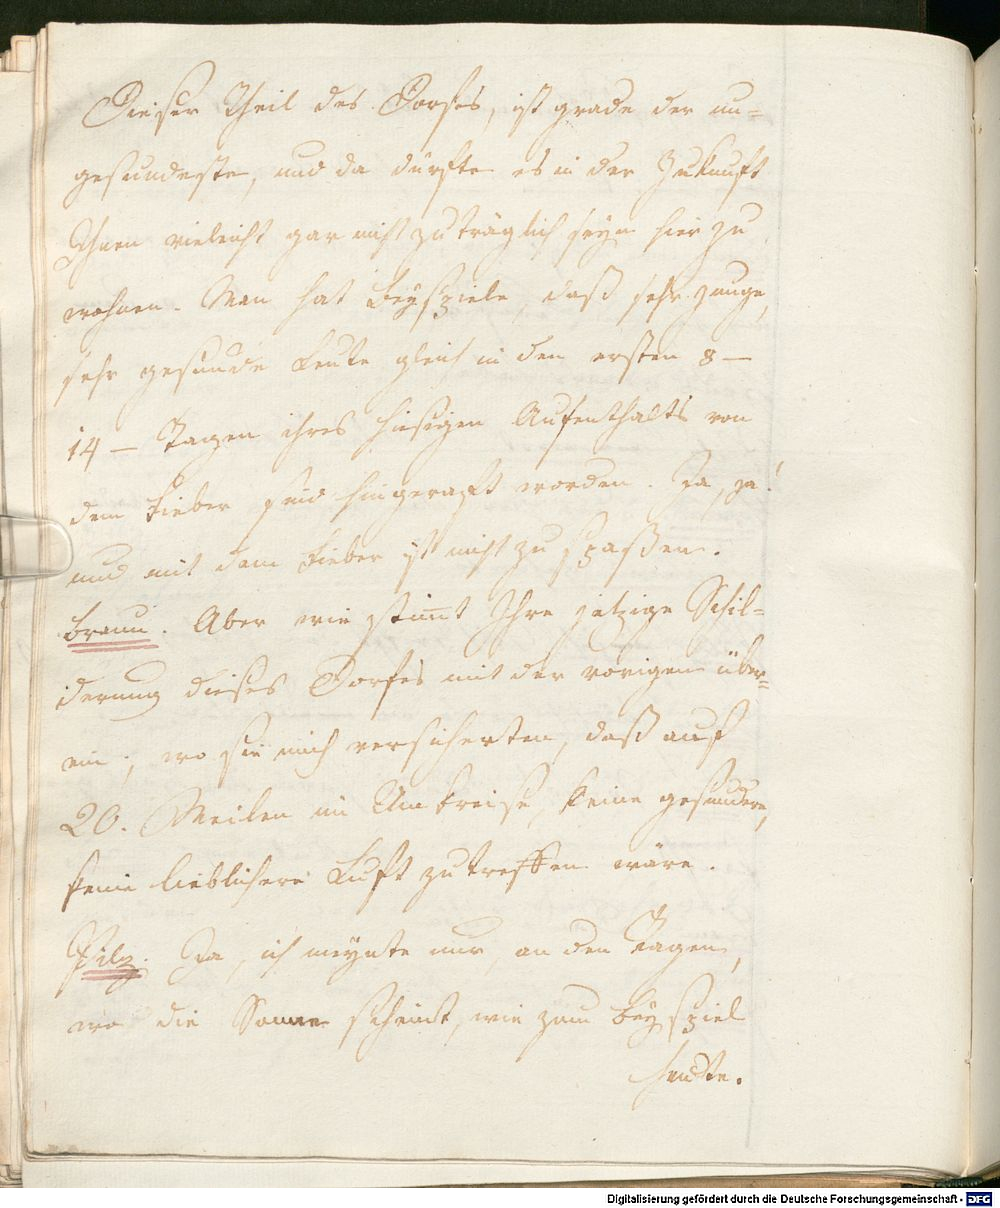 Dieser Theil des Dorfes, ist grade der un=
gesundeste, und da dürfte es in der Zukunft
Ihnen vieleicht gar nicht zuträglich seyn hier zu
wohnen. Man hat Beyspiele, daß sehr junge,
sehr gesunde Leute gleich in den ersten 8 —
14 — Tagen ihres hiesigen Aufenthalts von
dem Fieber sind hingeraft worden. Ja, ja!
und mit dem Fieber ist nicht zu spaßen.
Braun. Aber wie stim̅t Ihre jetzige Schil=
derung dieses Dorfes mit der vorigen über=
ein, wo sie mich versicherten, daß auf
20. Meilen im Umkreise, keine gesundere,
keine lieblichere Luft zu treffen wäre.
Pilz. Ja, ich meynte nur, an den Tagen,
wo die Sonne scheint, wie zum Beyspiel
heute.
Digitalisierung gefördert durch die Deutsche Forschungsgemeinschaft - DFG